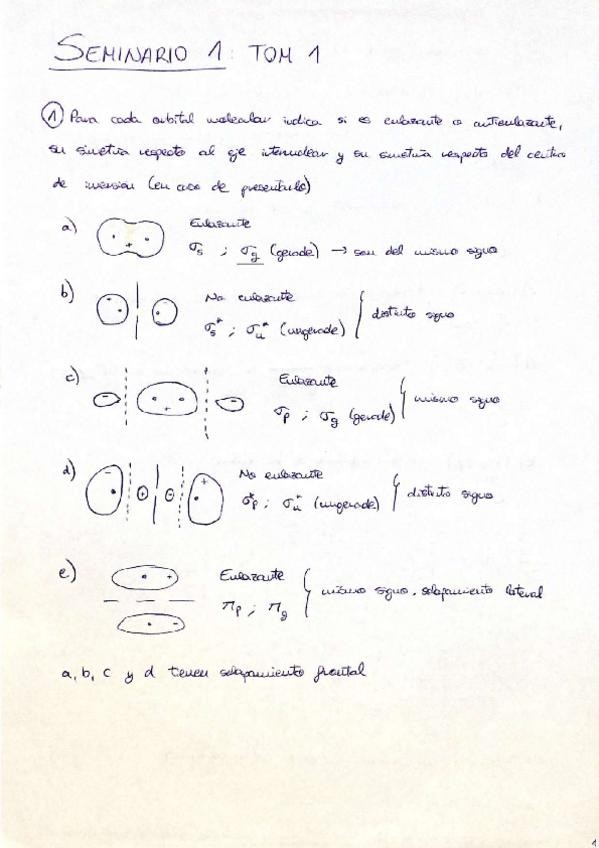 SEMINARIO 1: TOM 1
① Para cada orbital molecular indica si es enlazante o antienlazante,
su simetría respecto al eje internuclear y su simetría respecto del centro
de inversión (en caso de presentarlo)
a) + Enlazante
σs ; σg (gerade) → son del mismo signo
b) No enlazante
σs* ; σu* (ungerade) distinto signo
c) - + + - Enlazante
σp ; σg (gerade) mismo signo
d) - + - + No enlazante
σp* ; σu* (ungerade) distinto signo
e) + - Enlazante
πp ; πg mismo signo, solapamiento lateral
a, b, c y d tienen solapamiento frontal
1